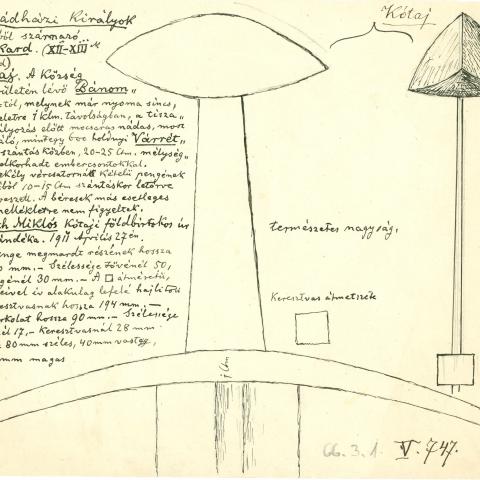 ádházi Királyok
ből származó
kard. (XII–XIII
d)
aj. A Község
rületén lévő Bánom„
tól, melynek már nyoma sincs,
eletre 1 klm. távolságban, a tisza„
ályozás előtt mocsaras nádas, most
ló, mintegy öve holdnyi Várrét„
szántás közben, 20-25 cm. mélység„
elkorhadt embercsontokkal.
ekély vércsatornáll kétélű pengének
ből 10-15 cm szántáskor letörve
veszett. A béresek más esetleges
mellékletre nem figyeltek.
ch Miklós Kótaji földbirtokos úr
ándéka. 1911 Április 27én.
nge megmardt részének hossza
mm. – Szélessége tövénél 50,
génél 30 mm. – A □ átmérőjű,
eivel ív alakulag lefelé hajlított
resztvasnak hossza 194 mm, –
arkolat hossza 90 mm. – Szélessége
nél 17, – Keresztvasnál 28 mm
80 mm széles, 40 mm vastag,
mm magas
Kótaj
természetes nagyság,
Keresztvas átmetszék
1 cm
66. 3. 1. V. 747.